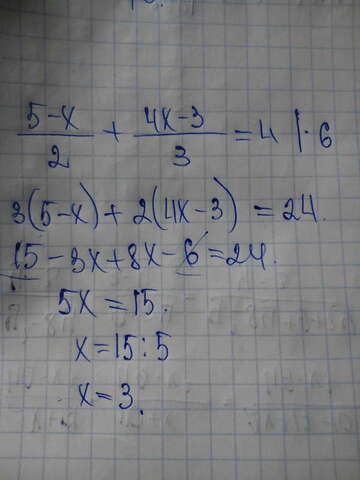 (5-x)/2 + (4x-3)/3 = 4 |·6
3(5-x)+2(4x-3) = 24.
15-3x+8x-6=24.
5x=15.
x=15:5
x=3.